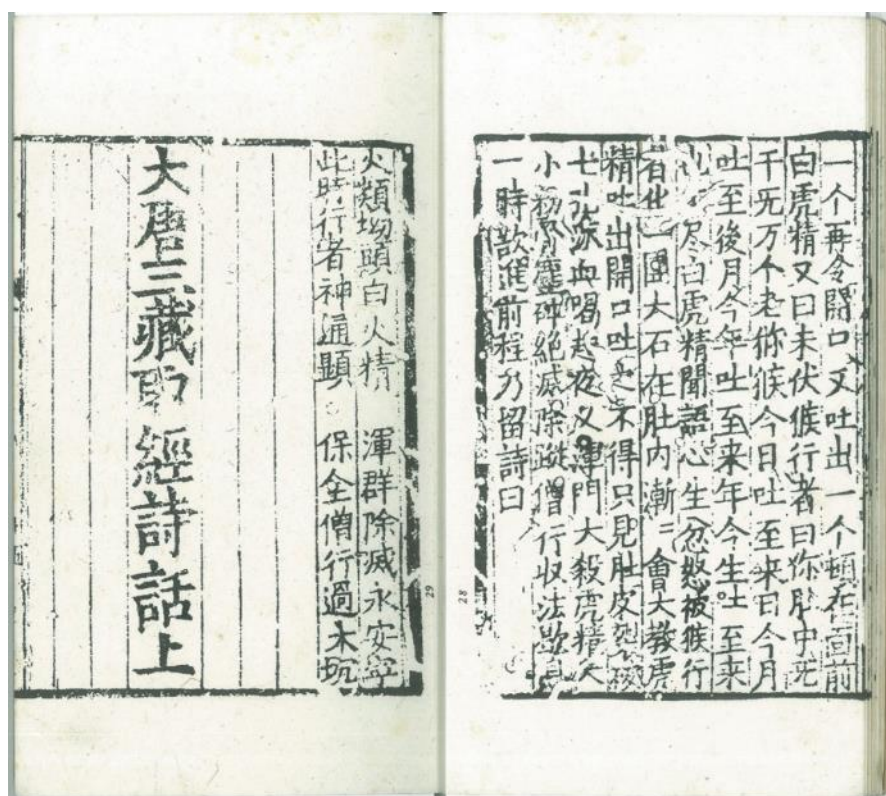 一个再令開口又吐出一个頓在面前
白虎精又曰未伏猴行者曰你肚中无
千无万个老猕猴今日吐至来日今月
吐至後月今年吐至来年今生吐至来
尽白虎精聞語心生忿怒被猴行
化一團大石在肚内漸二會大教虎
精吐出開口吐之不得只見肚皮
七孔流血喝起夜叉渾門大殺虎精大
小粉塵碎絶滅除蹤僧行収法歇息
一時欲進前程乃留詩曰
28
火類坳頭白火精 渾群除滅永安寧
此時行者神通顯 保全僧行過大坑
大唐三藏取經詩話上
29